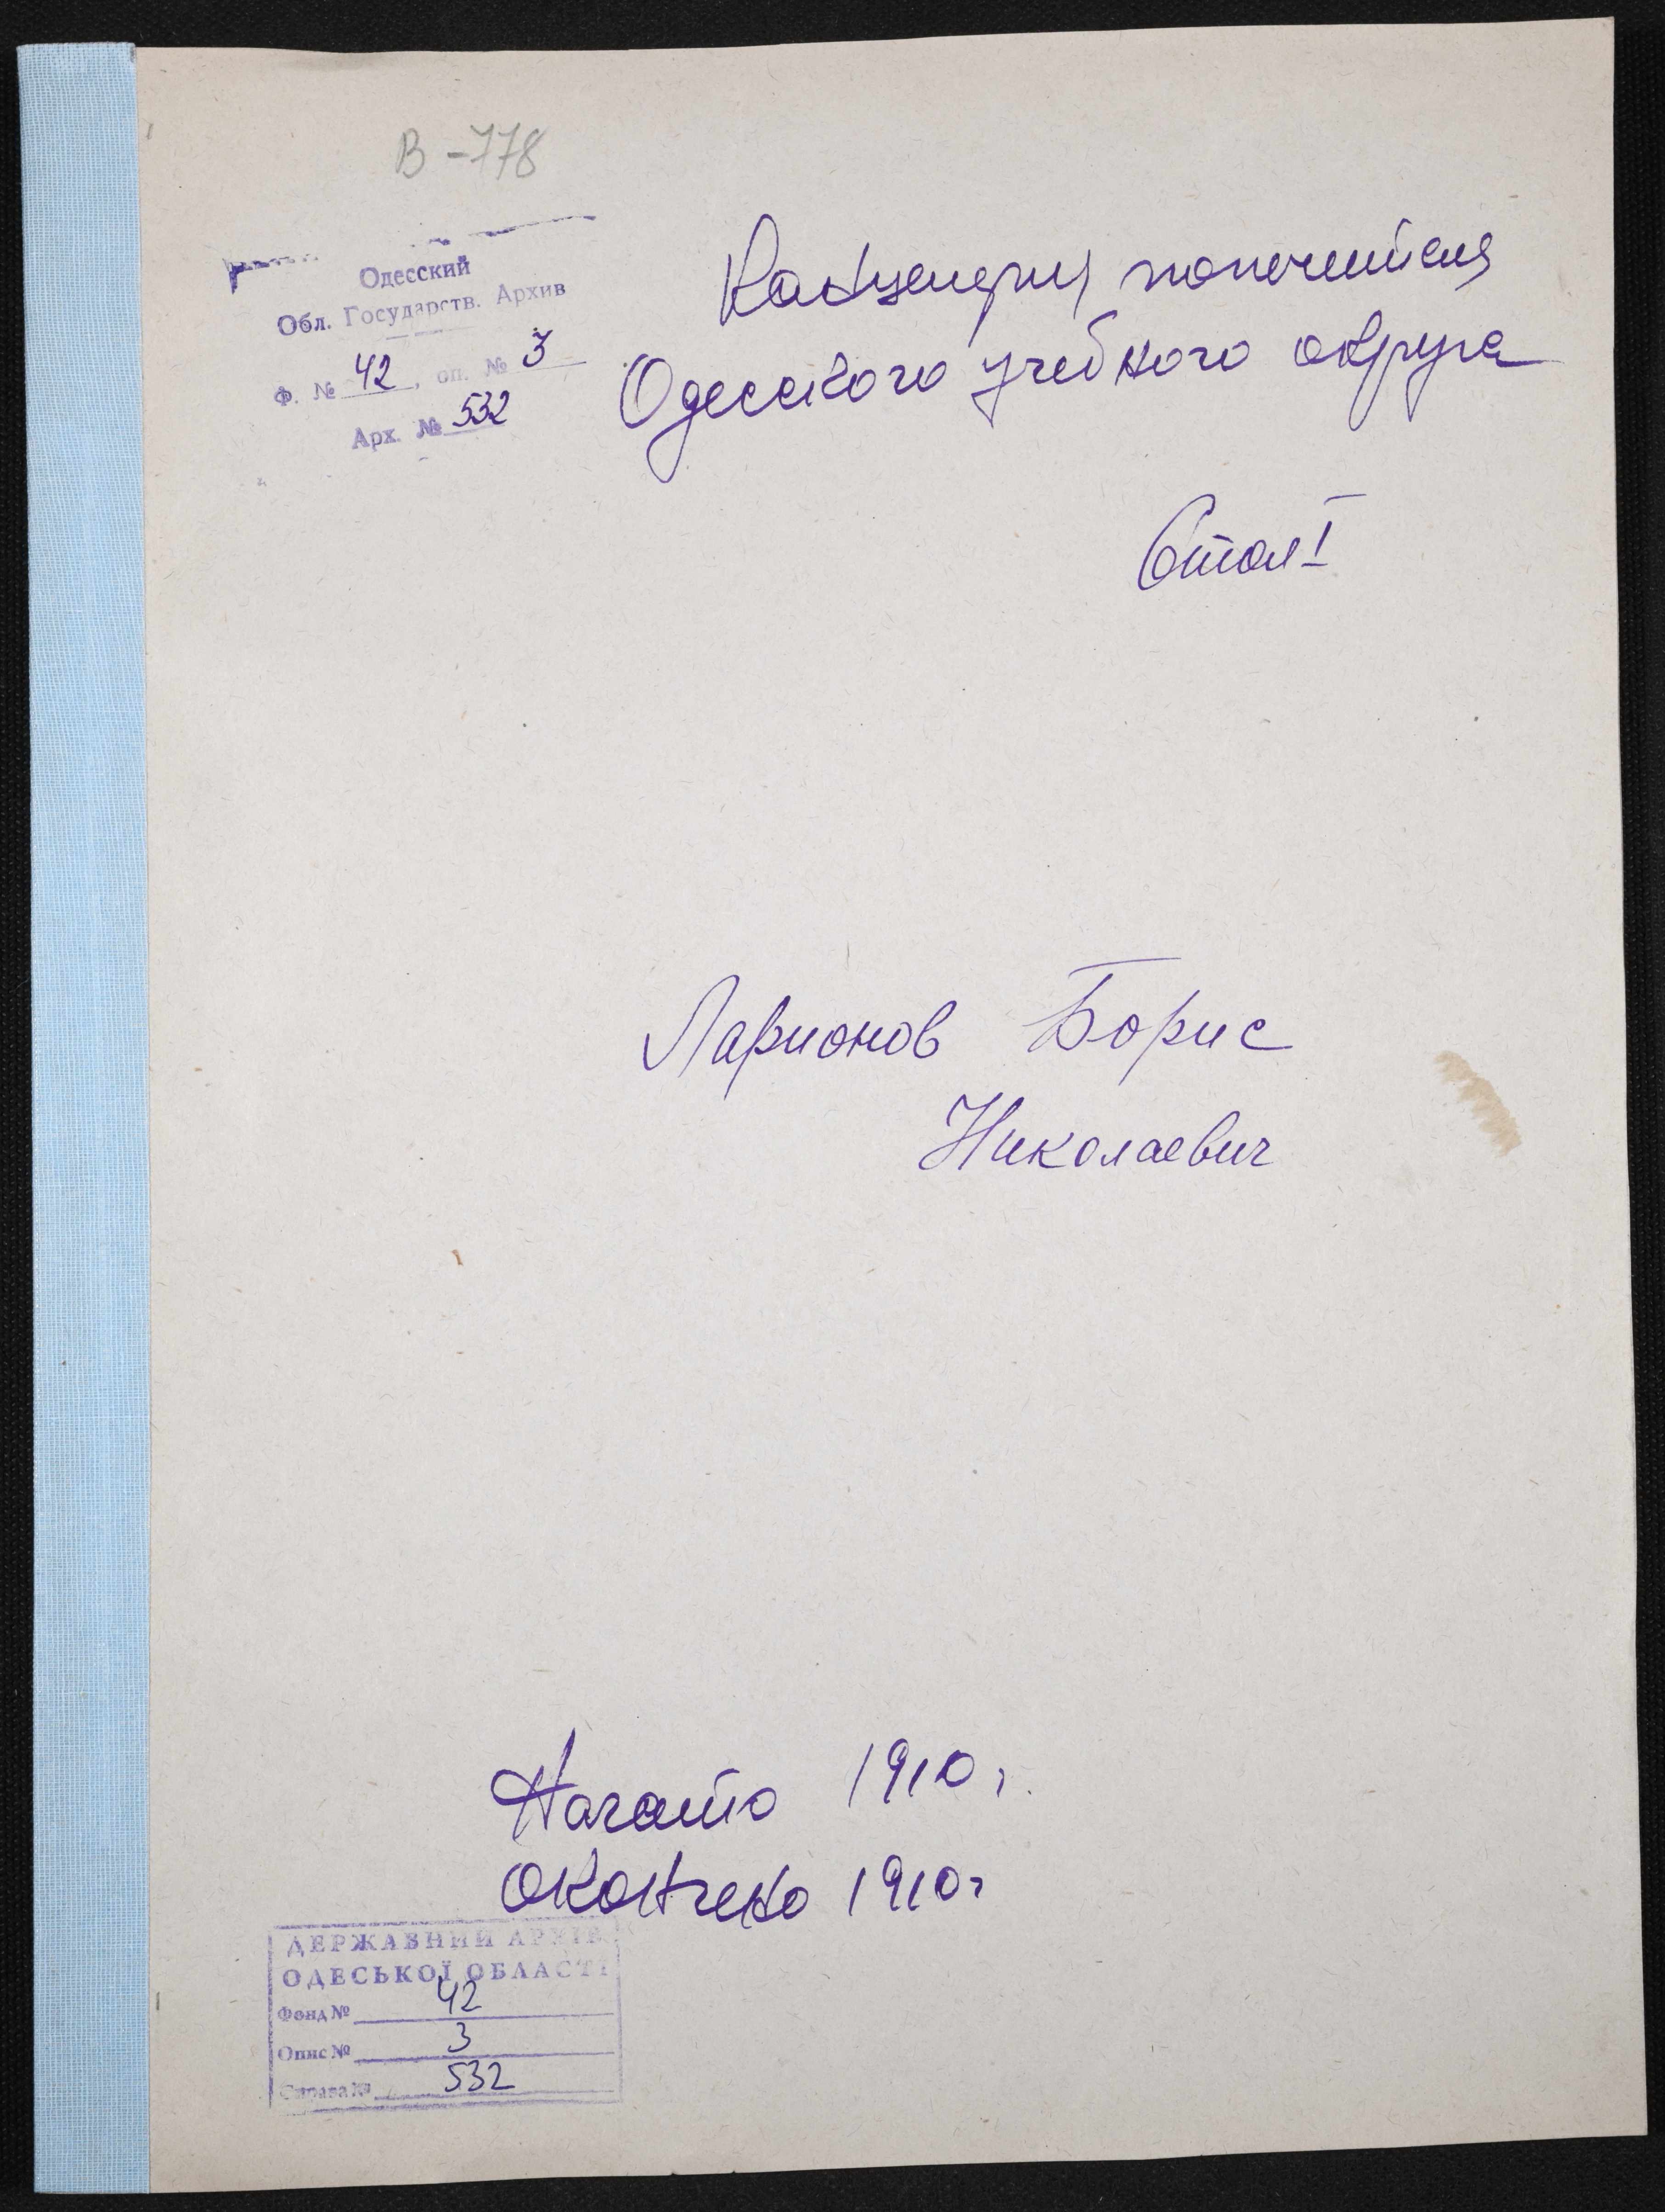 В-778
Одесский
Обл. Государств. Архив
Ф. № 42, оп. № 3
Арх. № 532
Канцелярия попечителя
Одесского учебного округа
Стол I
Ларионов Борис
Николаевич
Начато 1910 г.
Окончено 1910 г
ДЕРЖАВНИЙ АРХІВ
ОДЕСЬКОЇ ОБЛАСТІ
Фонд № 42
Опис № 3
Справа № 532